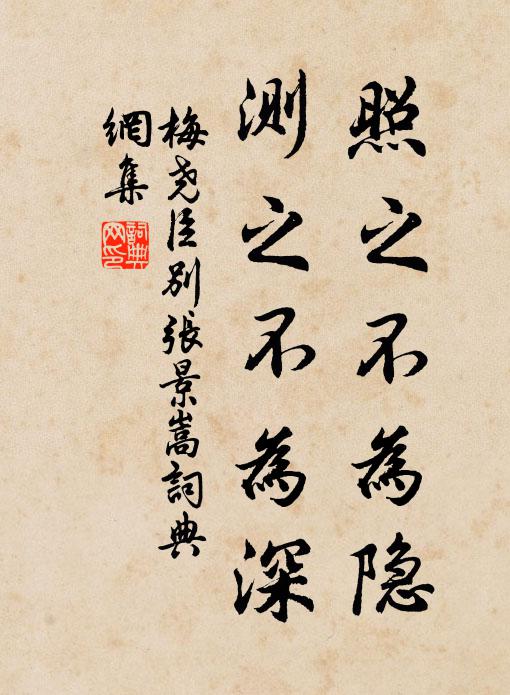 照之不為隐
測之不為深
梅尧臣别張景嵩詞典
網集
詞典网印